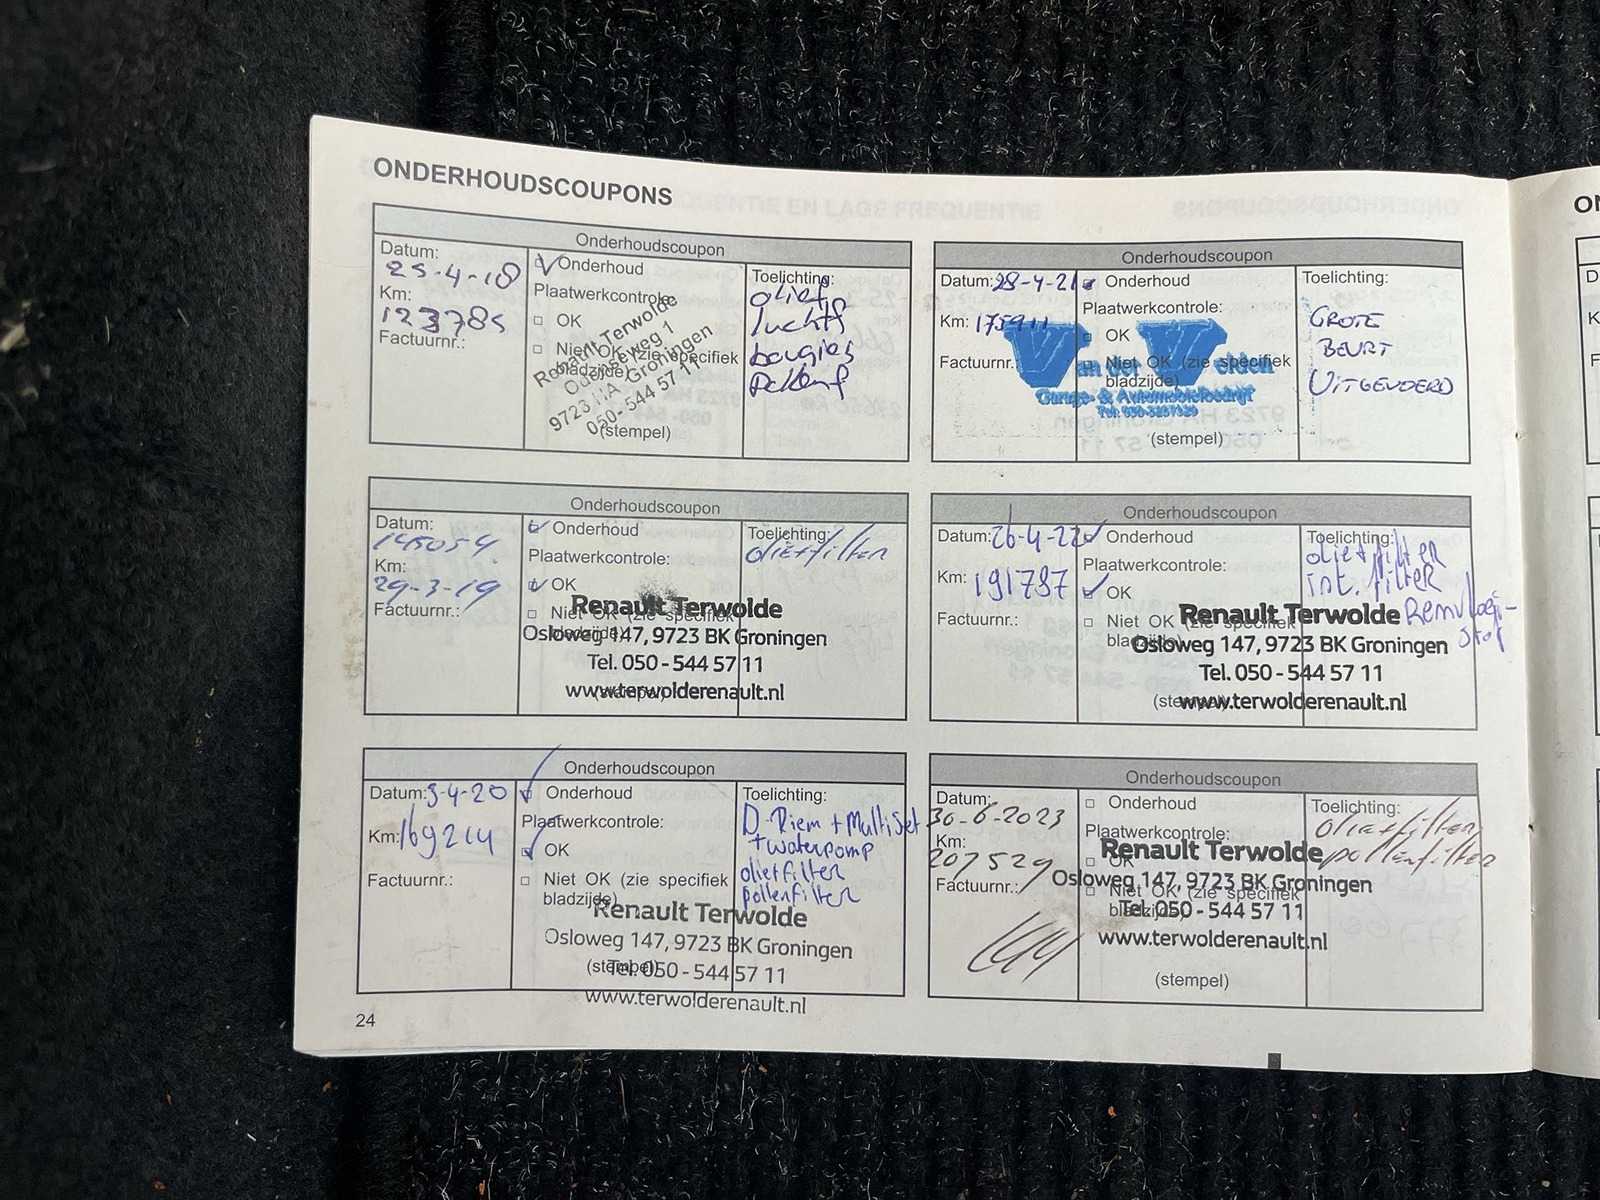 ONDERHOUDSCOUPONS
Onderhoudscoupon
Datum:
25-4-18
Km:
123785
Factuurnr.:
Onderhoud
Plaatwerkcontrole:
OK
Niet OK (zie specifiek
bladzijde)
Renault Terwolde
Odenseweg 1
9723 HA Groningen
050-544 57 11
(stempel)
Toelichting:
olief
luchtf
bougies
pollenf
Onderhoudscoupon
Datum:
145054
Km:
29-3-19
Factuurnr.:
Onderhoud
Plaatwerkcontrole:
OK
Niet OK (zie specifiek
bladzijde)
Renault Terwolde
Osloweg 147, 9723 BK Groningen
Tel. 050-544 57 11
(stempel)
www.terwolderenault.nl
Toelichting:
oliefilter
Onderhoudscoupon
Datum: 3-4-20
Km: 169214
Factuurnr.:
Onderhoud
Plaatwerkcontrole:
OK
Niet OK (zie specifiek
bladzijde)
Renault Terwolde
Osloweg 147, 9723 BK Groningen
(stempel)
Tel. 050-544 57 11
www.terwolderenault.nl
Toelichting:
D-Riem + Multiset
+ waterpomp
oliefilter
pollenfilter
24
Onderhoudscoupon
Datum: 28-4-21
Km: 175911
Factuurnr.:
Onderhoud
Plaatwerkcontrole:
OK
Niet OK (zie specifiek
bladzijde)
Van der Velden
Garage- & Automobielbedrijf
(stempel)
Toelichting:
GROTE
BEURT
UITGEVOERD
Onderhoudscoupon
Datum: 26-4-22
Km: 191787
Factuurnr.:
Onderhoud
Plaatwerkcontrole:
OK
Niet OK (zie specifiek
bladzijde)
Renault Terwolde
Osloweg 147, 9723 BK Groningen
Tel. 050-544 57 11
(stempel)
www.terwolderenault.nl
Toelichting:
oliefilter
int. filter
Remvloei-
stof
Onderhoudscoupon
Datum:
30-6-2023
Km:
207529
Factuurnr.:
Onderhoud
Plaatwerkcontrole:
OK
Niet OK (zie specifiek
bladzijde)
Renault Terwolde
Osloweg 147, 9723 BK Groningen
Tel. 050-544 57 11
www.terwolderenault.nl
(stempel)
Toelichting:
oliefilter
pollenfilter